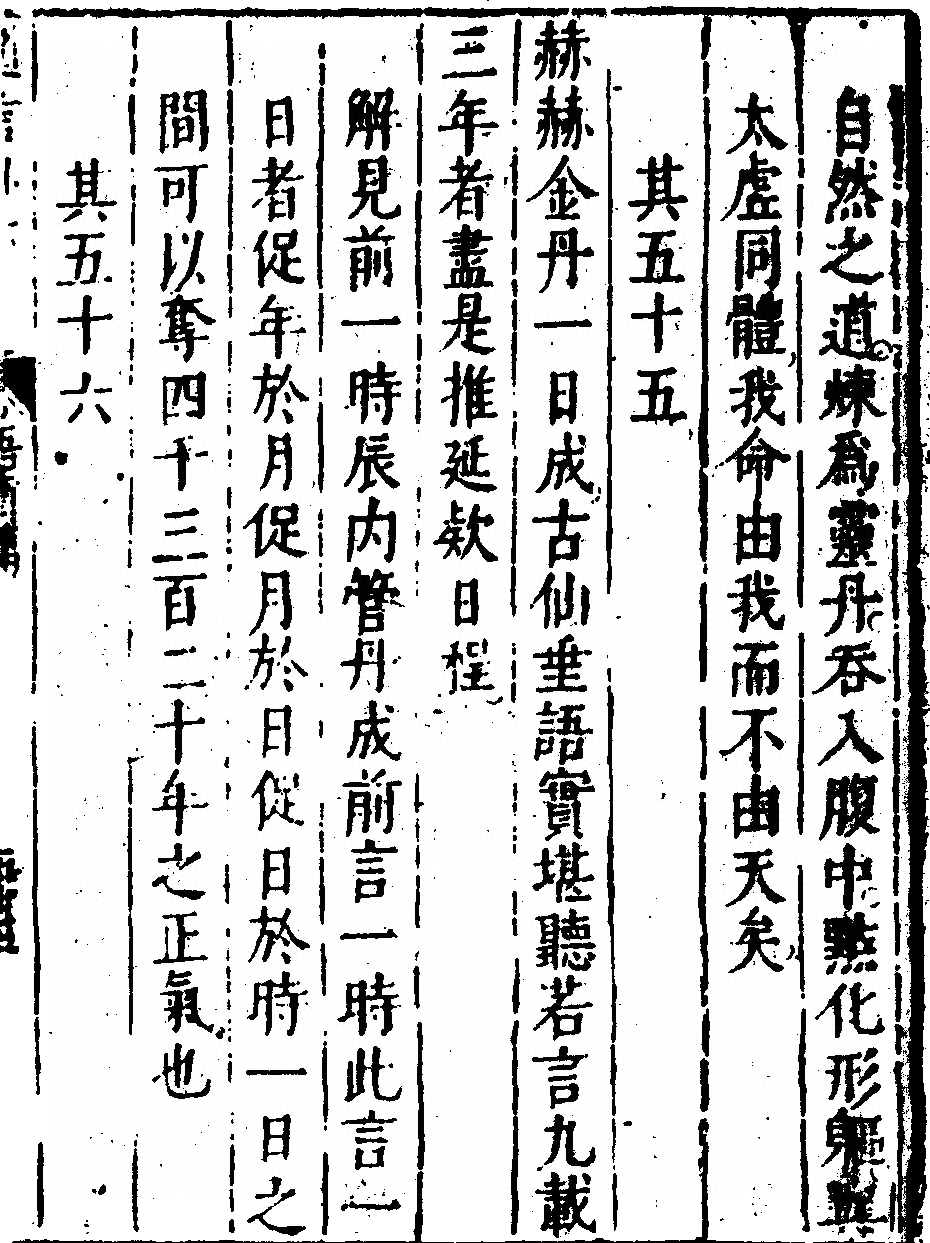 自然之道煉爲靈丹吞入腹中點化形軀與
太虛同體我命由我而不由天矣
其五十五
赫赫金丹一日成古仙垂語實堪聽若言九載
三年者盡是推延欵日程
解見前一時辰内管丹成前言一時此言一
日者促年於月促月於日促日於時一日之
間可以奪四千三百二十年之正氣也
其五十六